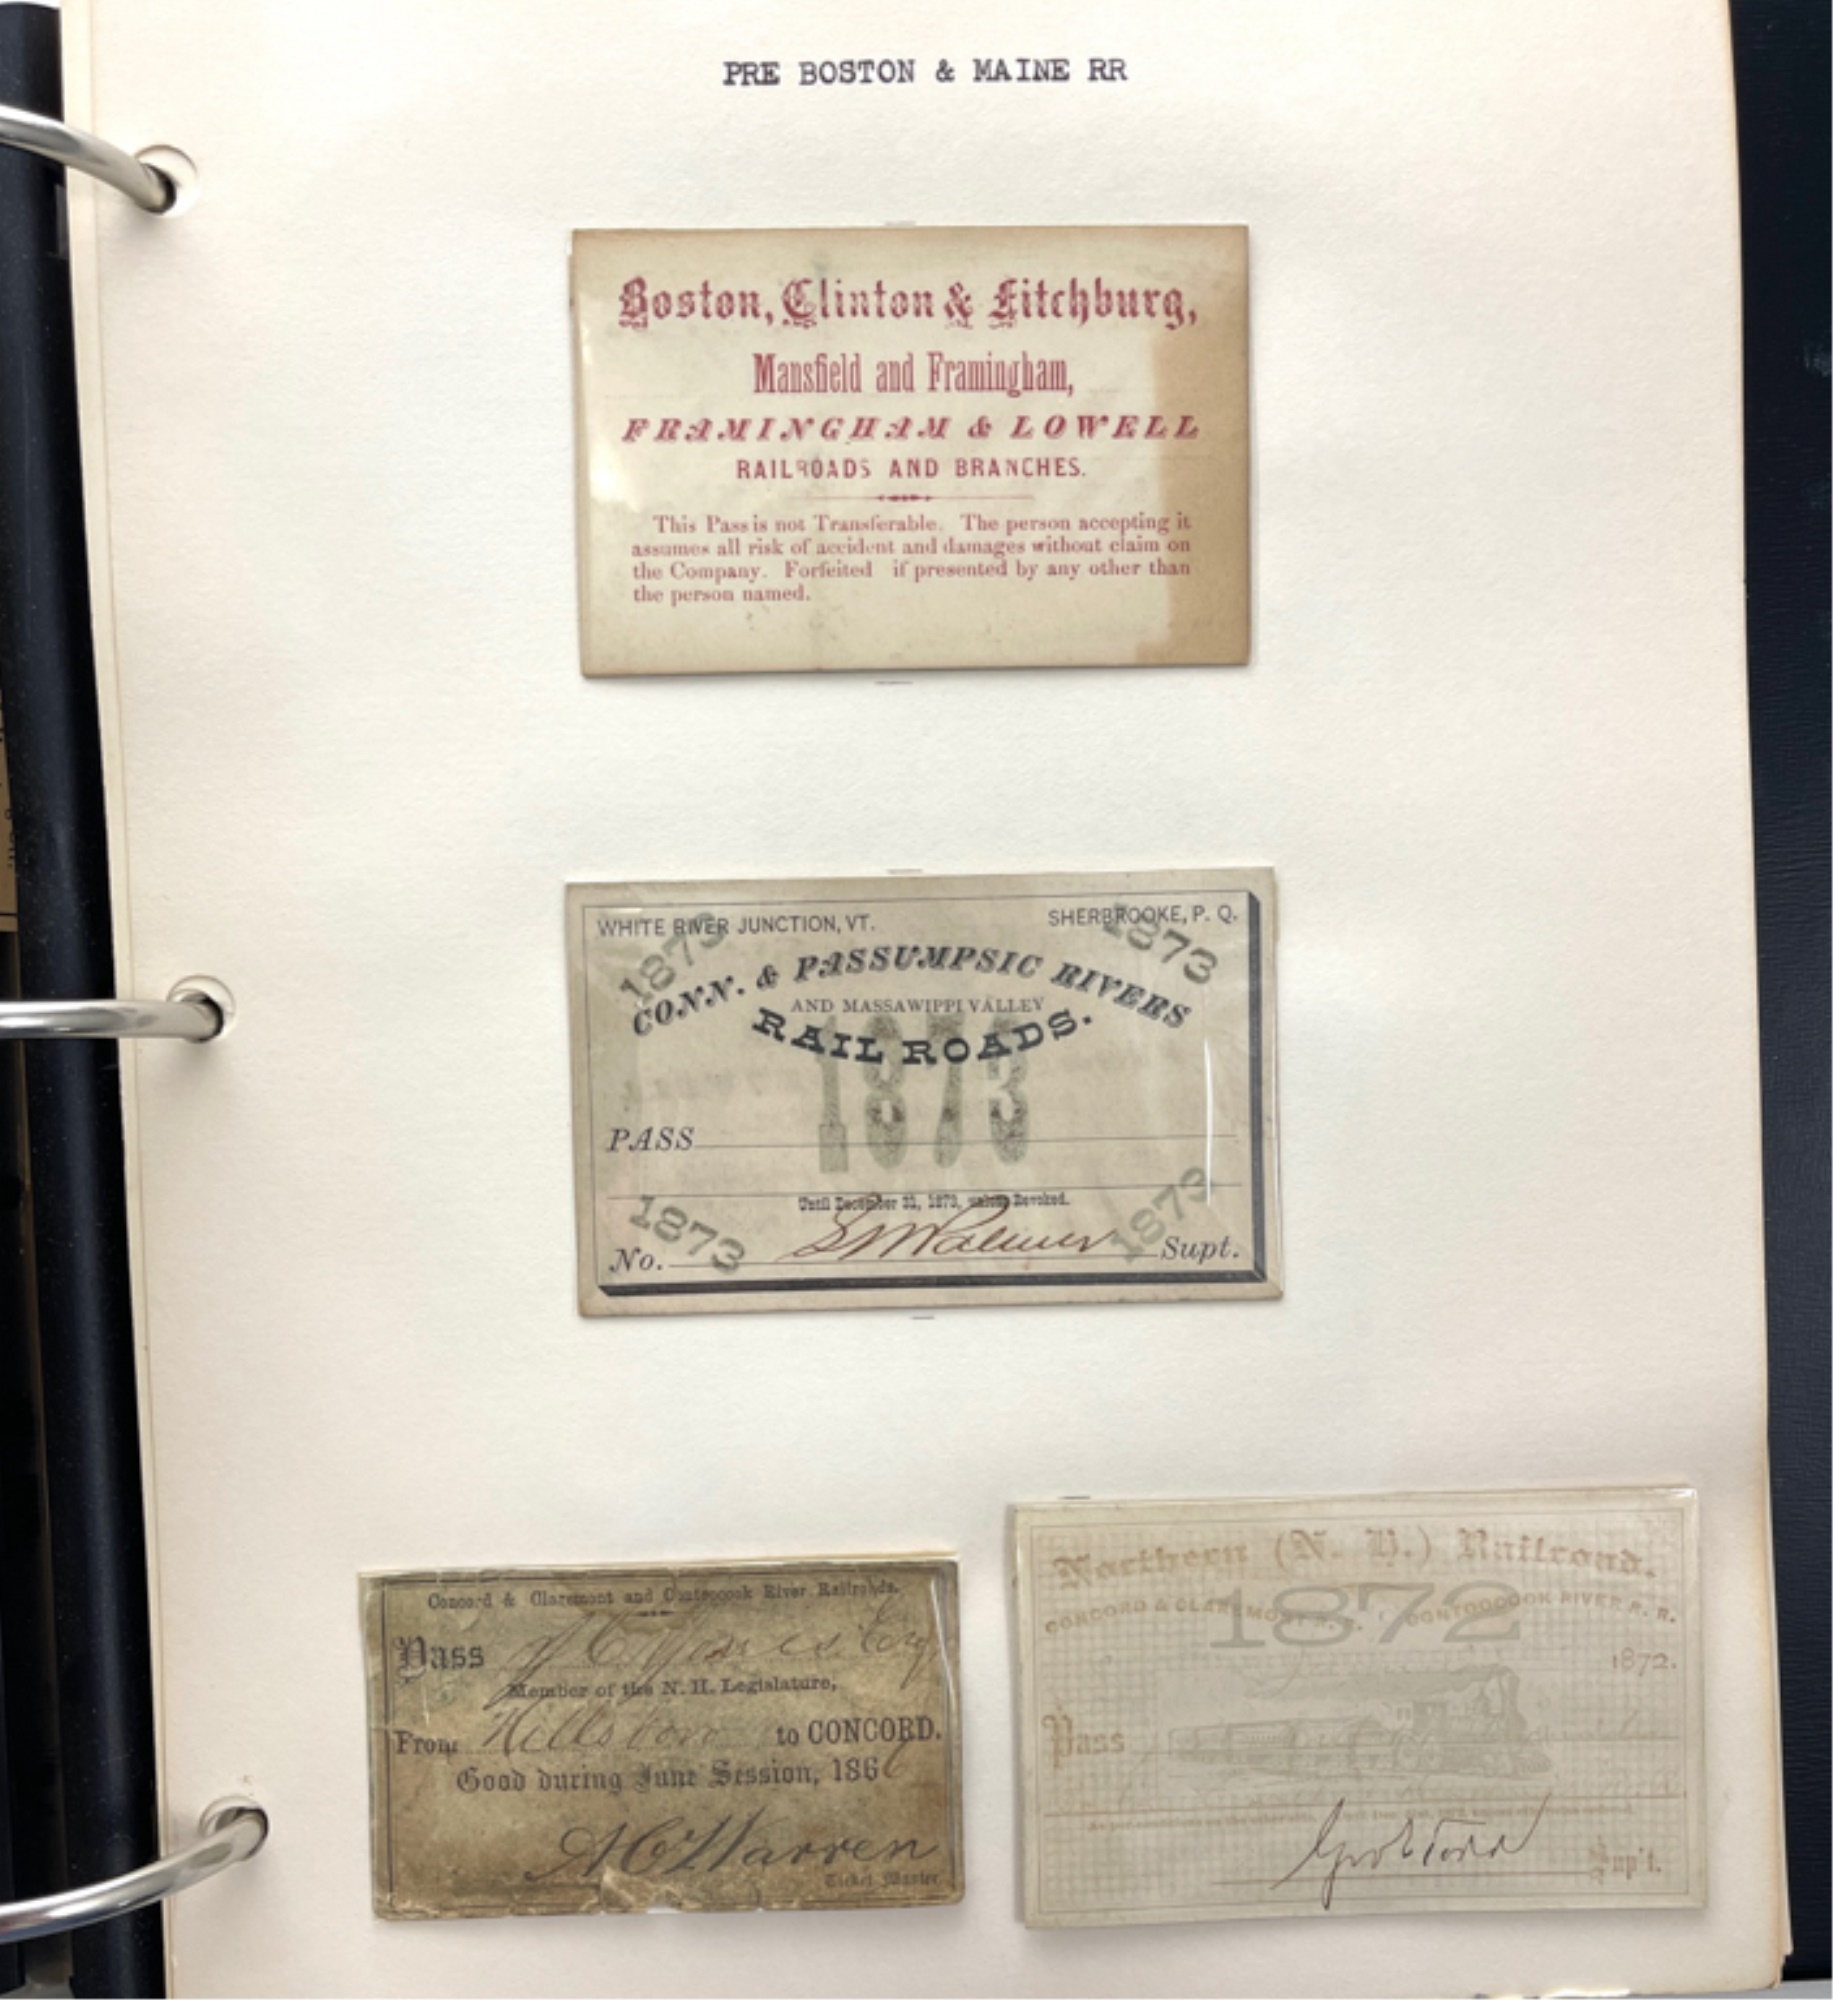 PRE BOSTON & MAINE RR
Boston, Clinton & Fitchburg,
Mansfield and Framingham,
FRAMINGHAM & LOWELL
RAILROADS AND BRANCHES.
This Pass is not Transferable. The person accepting it
assumes all risk of accident and damages without claim on
the Company. Forfeited if presented by any other than
the person named.
WHITE RIVER JUNCTION, VT. SHERBROOKE, P. Q.
1873 1873
CONN. & PASSUMPSIC RIVERS
AND MASSAWIPPI VALLEY
RAIL ROADS.
1873
PASS
Until December 31, 1873, unless Revoked.
1873 1873
No. Supt.
Concord & Claremont and Contoocook River Railroads.
Pass Esq
Member of the N. H. Legislature,
From Hillsboro to CONCORD.
Good during June Session, 1866
A C Warren
Ticket Master
Northern (N. H.) Railroad.
1872
CONCORD & CLAREMONT R. R. CONTOOCOOK RIVER R. R.
1872.
Pass
Geo E Todd
Sup't.